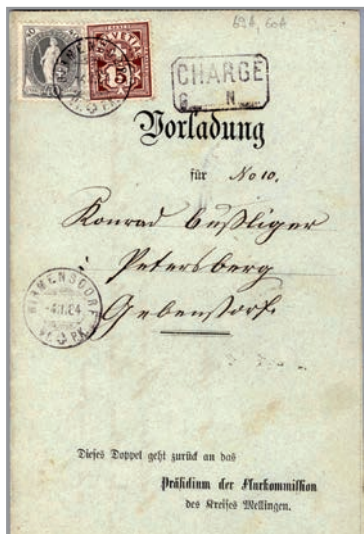 69A, 60A
40
5
CHARGE
N
Vorladung
für No 10.
Konrad Bußliger
Petersberg
Gebenstorf.
BIRMENSDORF
PK.
Dieses Doppel geht zurück an das
Präsidium der Flurkommission
des Kreises Mellingen.